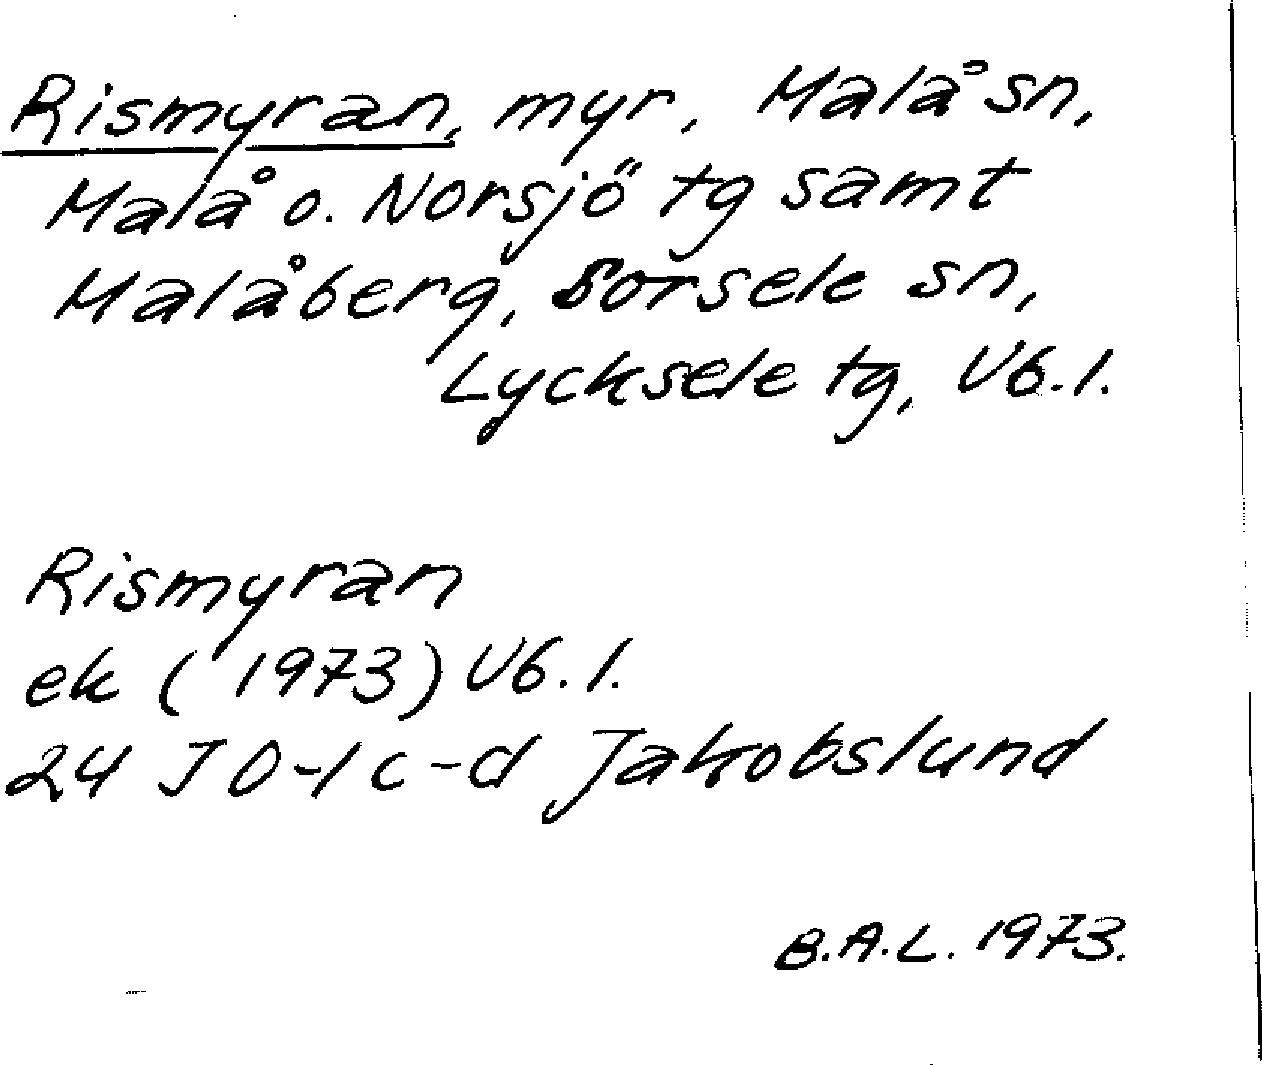 Rismyran, myr, Malå sn,
Malå o. Norsjö tg samt
Malåberg, Sorsele sn,
Lycksele tg, Vb. l.
Rismyran
ek (1973) Vb. l.
24 J 0-1 c-d Jakobslund
B.A.L. 1973.